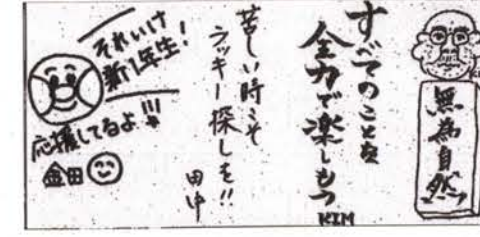 無為自然
すべてのことを
全力で楽しもう
KIM
苦しい時こそ
ラッキー探しを!!
田中
それいけ
新1年生!
応援してるよ!!!
金田